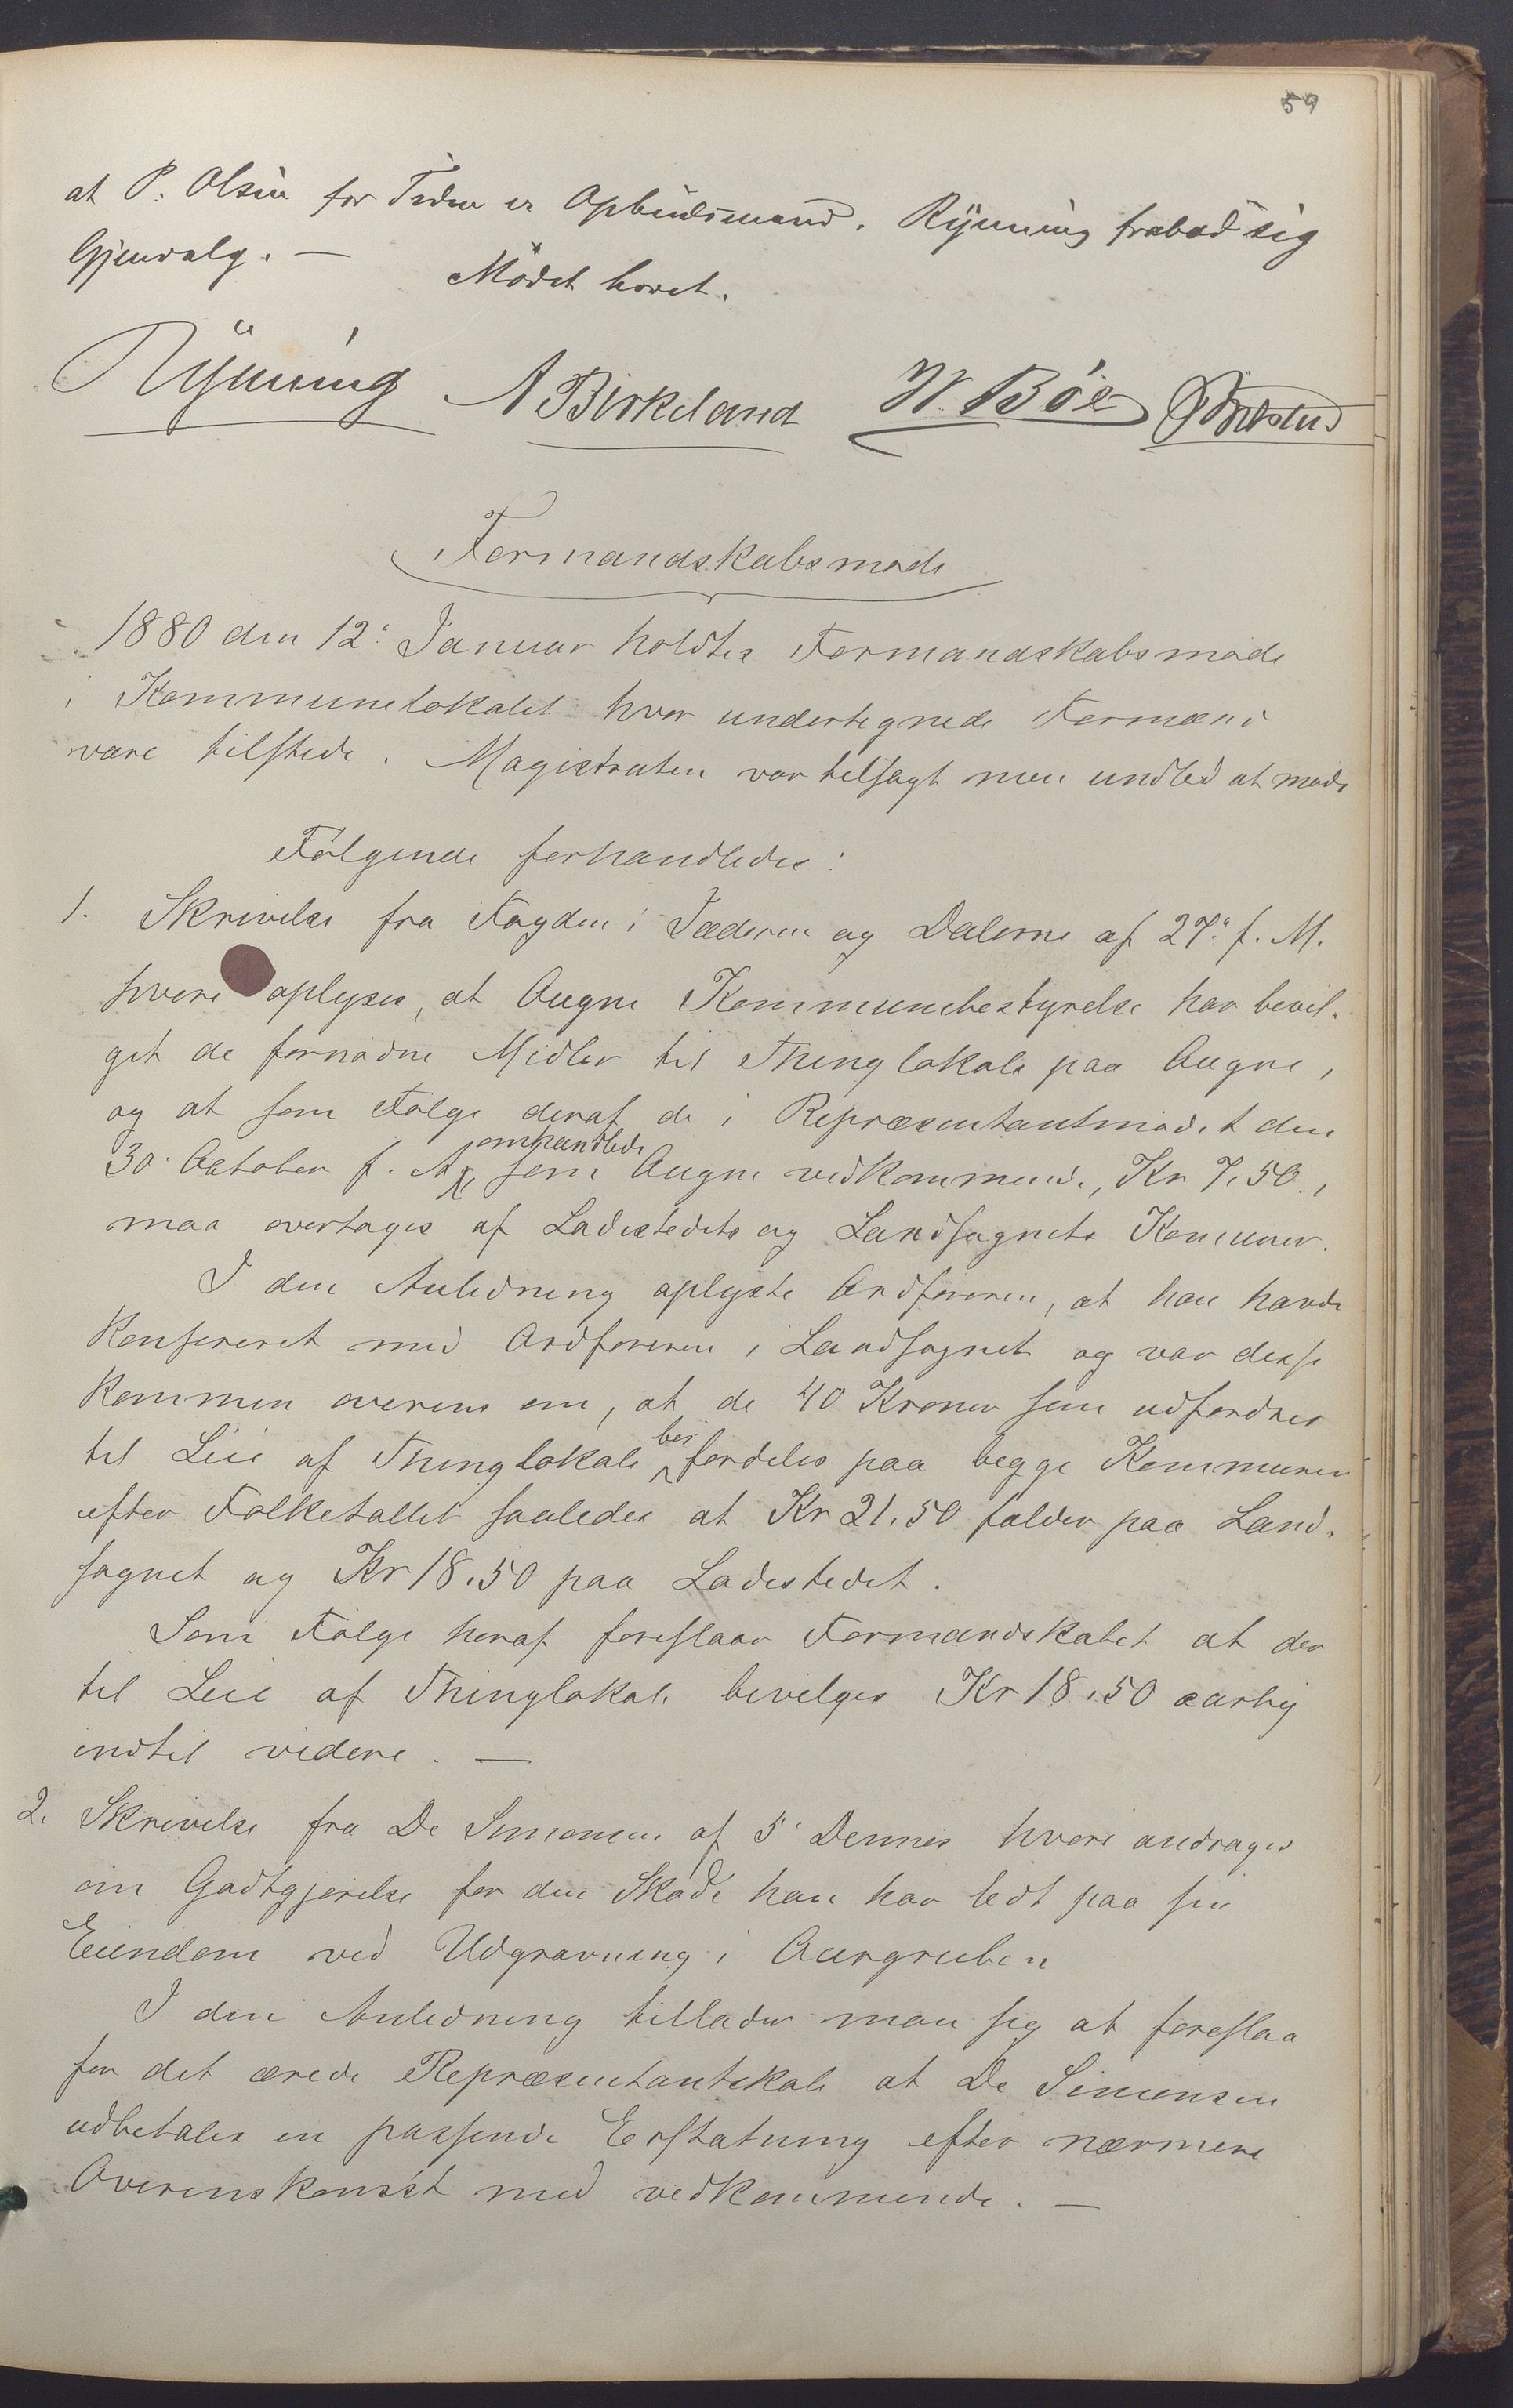 59
at P. Olsen for Tiden er Opbudsmand. Rynning frabad sig
Gjenvalg. —
Mødet hævet.
Rynning A Birkeland W. Bøe
Formandskabsmøde
1880 den 12' Januar holdtes Formandskabsmøde
i Kommunelokalet hvor undertegnede Formænd
vare tilstede. Magistraten var tilsagt men undlod at møde
Følgende forhandledes:
1. Skrivelse fra Fogden i Jæderen og Dalerne af 27' f. M.
hvori oplyses, at Augne Kommunebestyrelse har bevil-
get de fornødne Midler til Thinglokale paa Augne,
og at som Følge deraf de i Repræsentantmødet den
30' October f. A. omhandlede som Augne vedkommende, Kr 7.50,
maa overtages af Ladestedets og Landsognets Kommuner.
I den Anledning oplyste Ordføreren, at han havde
konfereret med Ordføreren i Landsognet og var disse
kommen overens om, at de 40 Kroner som udfordres
til Leie af Thinglokale bør fordeles paa begge Kommuner
efter Folketallet saaledes at Kr 21.50 falder paa Land-
sognet og Kr 18.50 paa Ladestedet.
Som Følge heraf foreslaar Formandskabet at der
til Leie af Thinglokale bevilges Kr 18.50 aarlig
indtil videre. —
2. Skrivelse fra De Simonsen af 5' Dennes hvori andrages
om Godtgjørelse for den Skade han har lidt paa sin
Eiendom ved Udgravning i Aurgruben
I den Anledning tillader man sig at foreslaa
for det ærede Repræsentantskab at De Simonsen
udbetales en passende Erstatning efter nærmere
Overenskomst med vedkommende. —